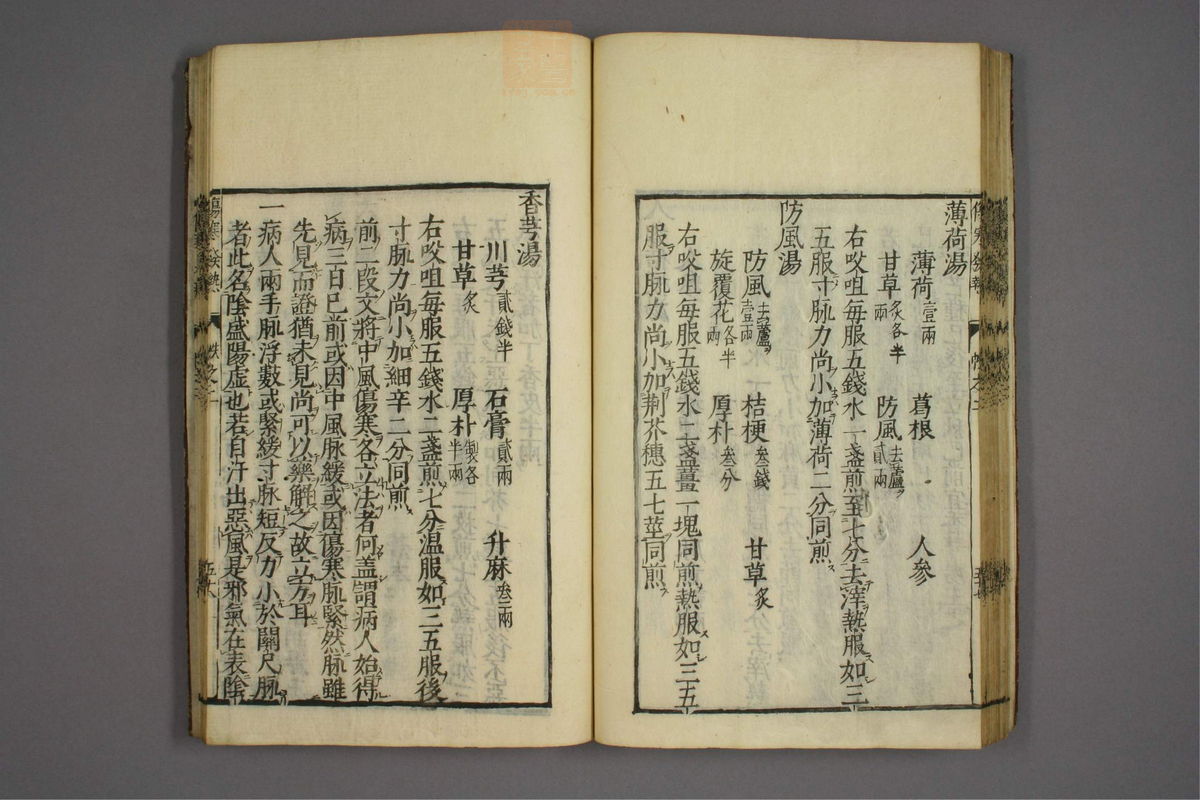 薄荷湯
薄荷壹兩 葛根 人參
甘草炙各半兩 防風去蘆貳兩
右㕮咀每服五錢水一盞煎至七分去滓熱服如三
五服寸脉力尚小加薄荷二分同煎
防風湯
防風去蘆壹兩 桔梗叁錢 甘草炙
旋覆花各半兩 厚朴叁分
右㕮咀每服五錢水二盞薑一塊同煎熱服如三五
服寸脉力尚小加荆芥穗五七莖同煎
香芎湯
川芎貳錢半 石膏貳兩 升麻叁兩
甘草炙 厚朴製各半兩
右㕮咀每服五錢水二盞煎七分温服如三五服後
寸脉力尚小加細辛二分同煎
前二段文將中風傷寒各立法者何盖謂病人始得
病三日已前或因中風脉緩或因傷寒脉緊然脉雖
先見而證猶未見尚可以藥解之故立方耳
一病人兩手脉浮數或緊緩寸脉短反力小於關尺脉
者此名陰盛陽虚也若自汗出惡風是邪氣在表陰